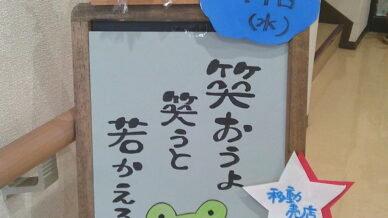 (水)
笑おうよ
笑うと
若かえる
移動
売店